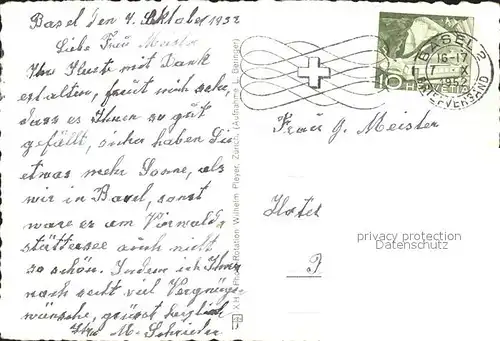 Basel den 7. Oktober 1952
Liebe Frau Meister
Ihre Karte mit Dank
erhalten, freut mich sehr,
dass es Ihnen so gut
gefällt, sicher haben Sie
etwas mehr Sonne, als
wir in Basel, sonst
wäre es am Vierwald
stättersee auch nicht
so schön. Indem ich Ihnen
noch recht viel Vergnügen
wünsche, grüsst herzlich
Ihre M. Schneider
Photo Rotation Wilhelm Pleyer, Zürich. (Aufnahme J. Beringer)
BASEL 2
16-17
7 X
1952
BRIEFVERSAND
10 HELVETIA
Frau G. Meister
Hotel
privacy protection
Datenschutz
P